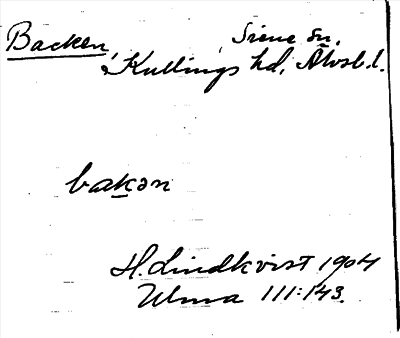 Backen, Siene sn.
Kullings hd, Älvsb. l.
bakən
H. Lindkvist 1904
Ulma 111:143.